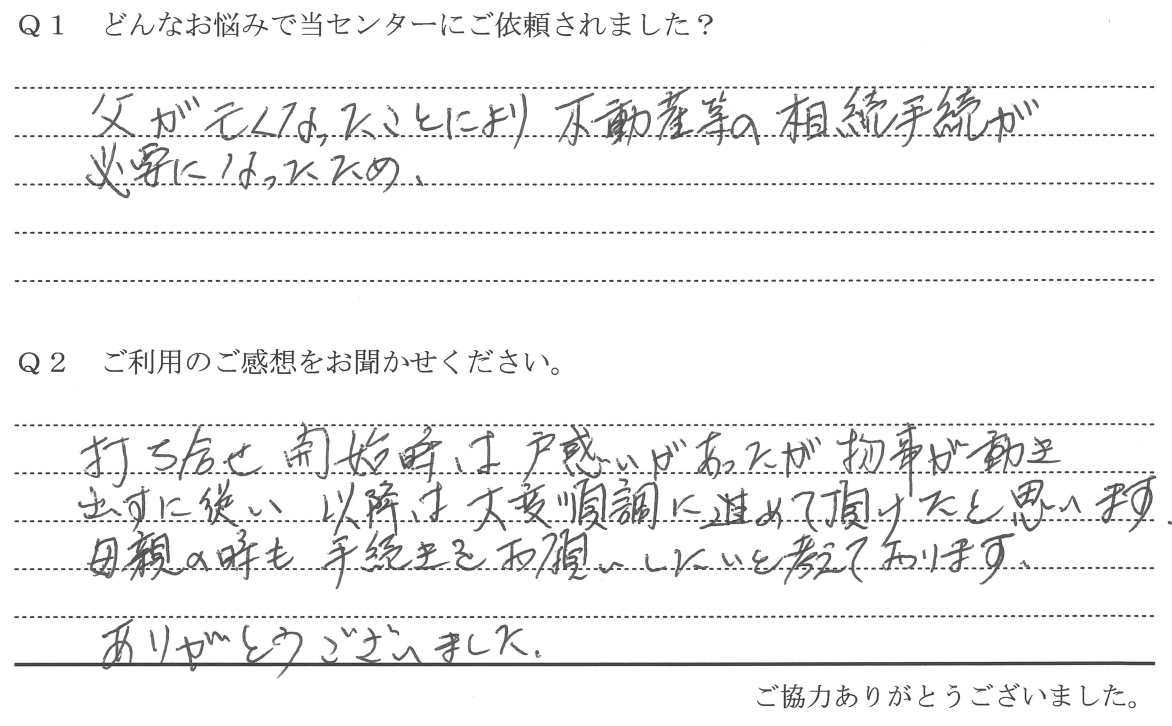 Ｑ１　どんなお悩みで当センターにご依頼されました？
父が亡くなったことにより 不動産等の 相続手続が
必要になったため、
Ｑ２　ご利用のご感想をお聞かせください。
打ち合せ 開始時は 戸惑いがあったが 物事が動き
出すに従い 以降は 大変順調に進めて頂けたと思います。
母親の時も 手続きをお願いしたいと考えております。
ありがとうございました。
ご協力ありがとうございました。